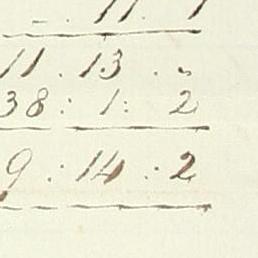 11. 1
11. 13. "
38: 1: 2
9: 14: 2